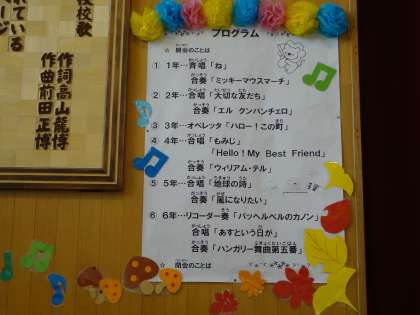 校校歌
れている
ージ
作詞高山龍博
作曲前田正博
プログラム
☆ 開会のことば
① 1年…斉唱「ね」
合奏「ミッキーマウスマーチ」
② 2年…合唱「大切な友だち」
合奏「エル クンバンチェロ」
③ 3年…オペレッタ「ハロー!この町」
④ 4年…合唱「もみじ」
「Hello! My Best Friend」
合奏「ウィリアム・テル」
⑤ 5年…合唱「地球の詩」
合奏「風になりたい」
⑥ 6年…リコーダー奏「パッヘルベルのカノン」
合唱「あすという日が」
合奏「ハンガリー舞曲第五番」
☆ 閉会のことば